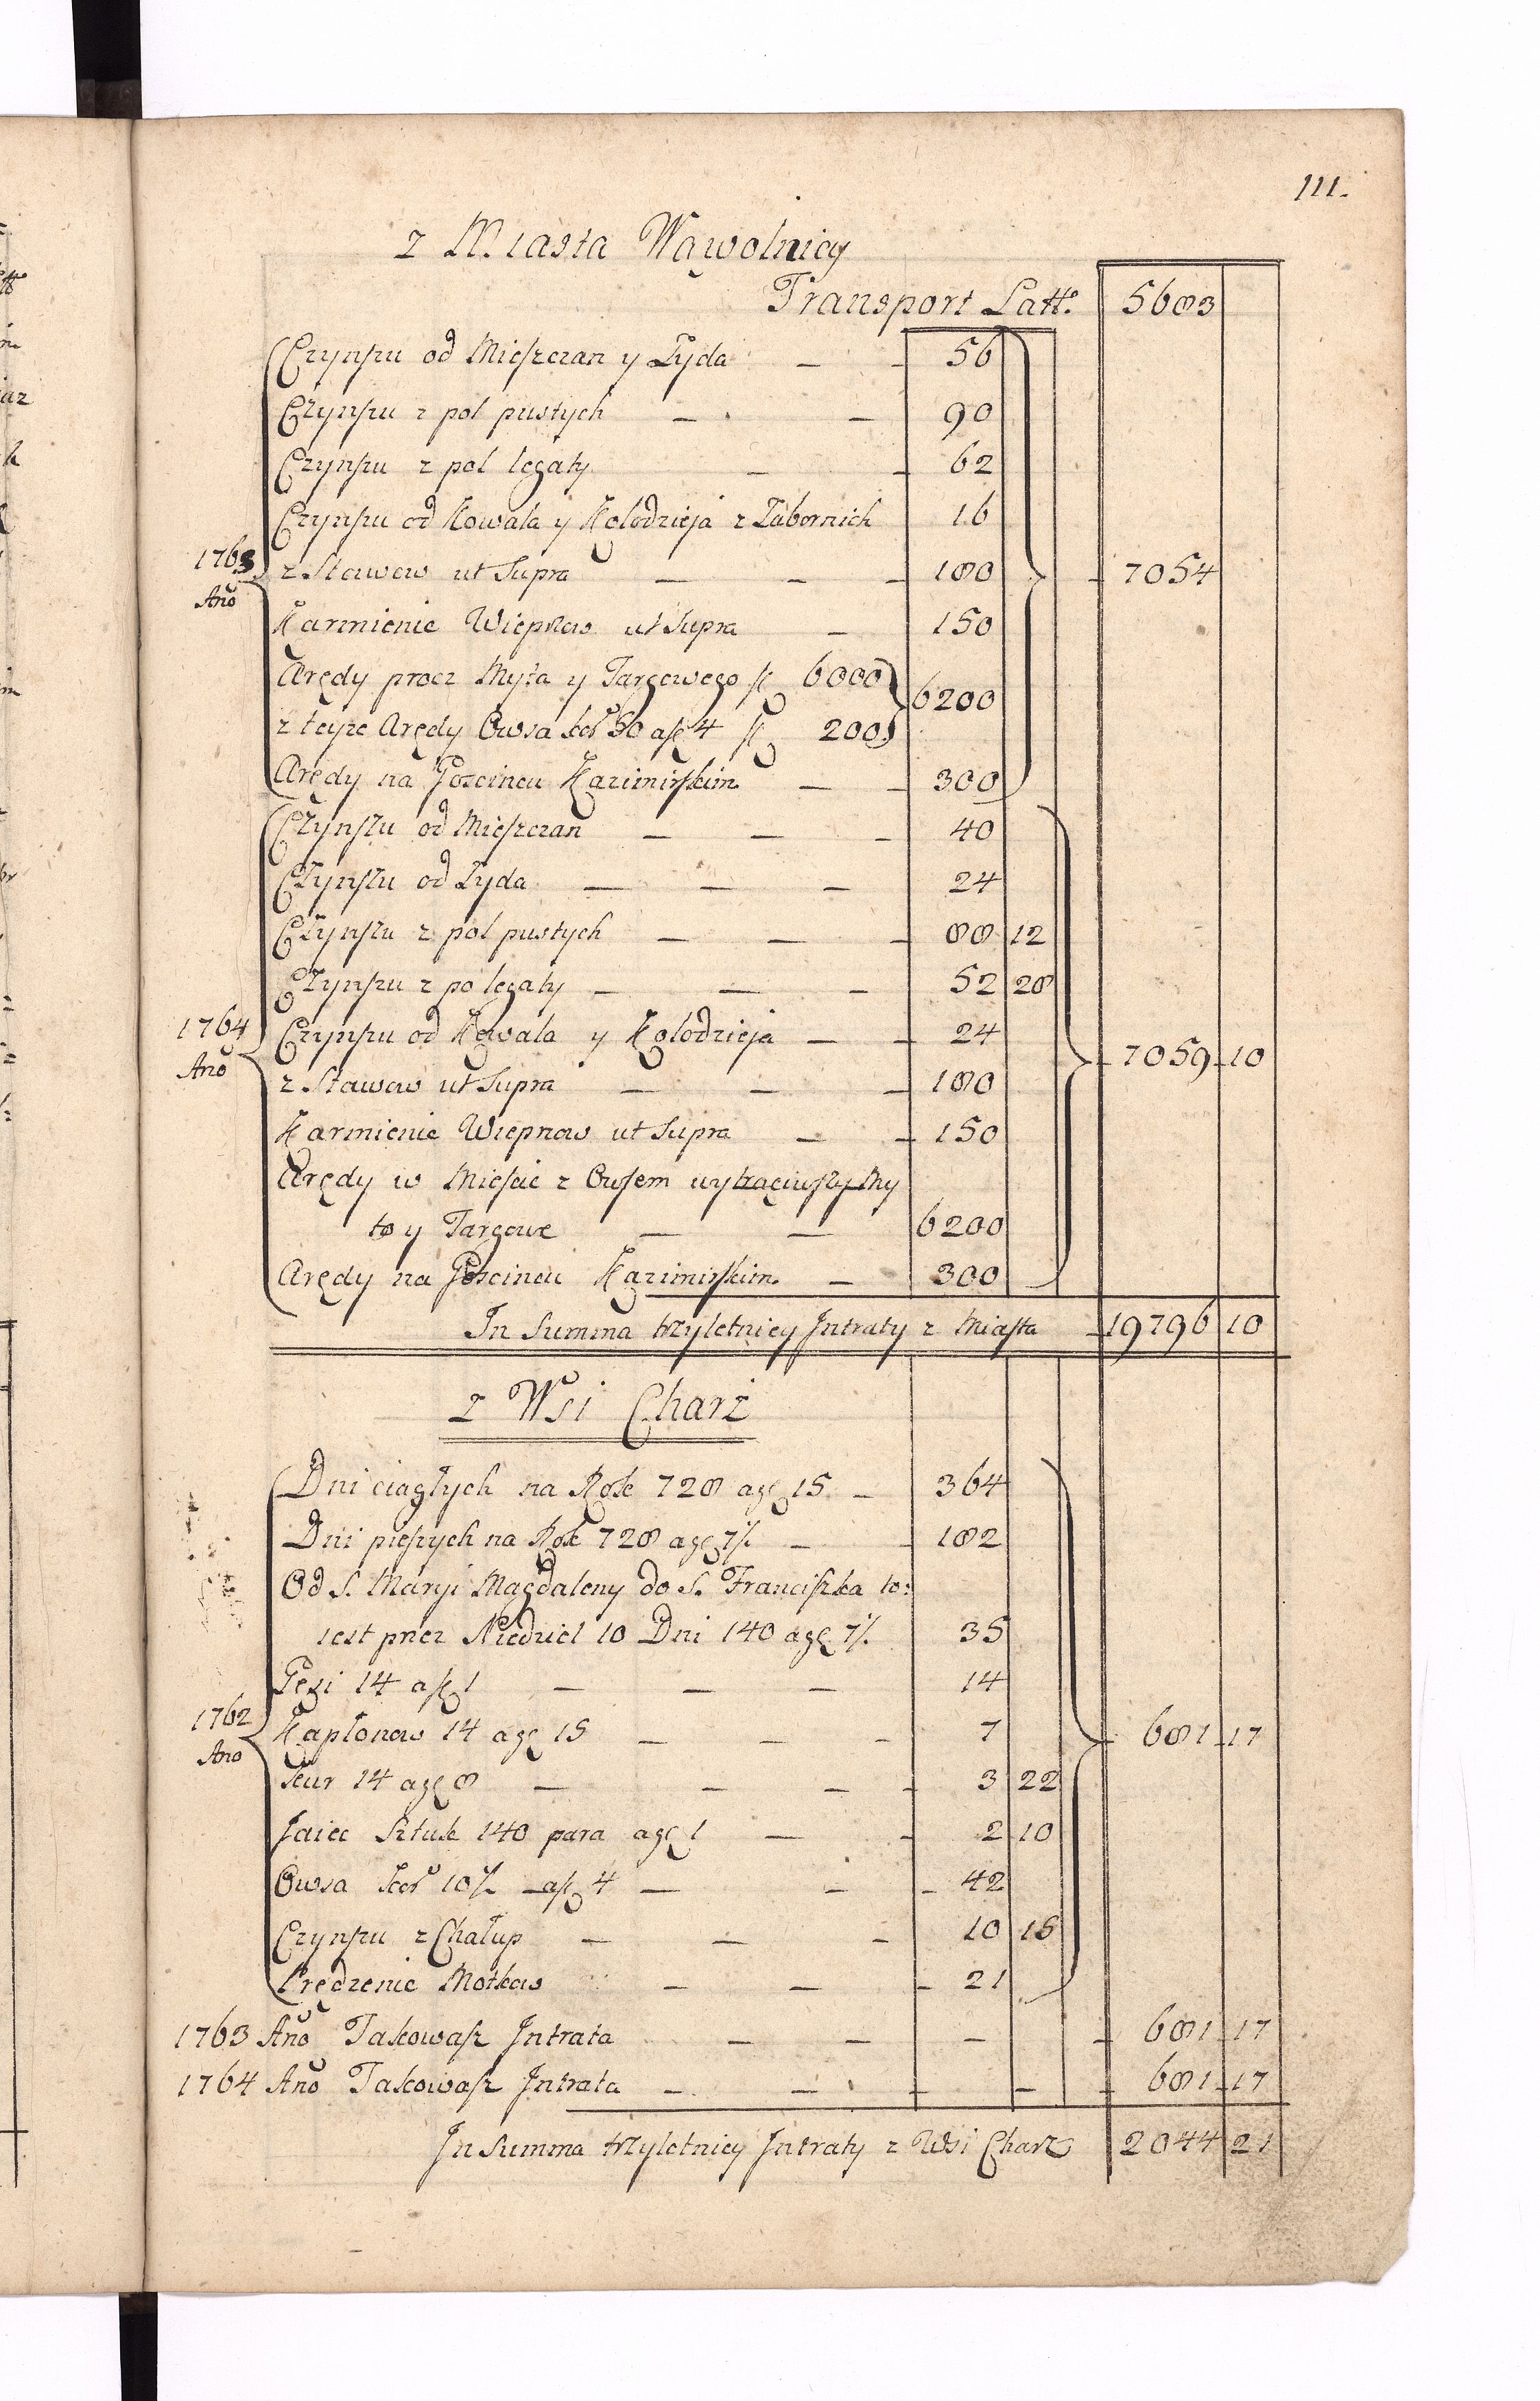 111.
z Miasta Wąwolnicy
Transport Latt: 5683
Czynszu od Mieszczan y Żyda — — 56
Czynszu z pol pustych — — 90
Czynszu z pol legaty — — 62
Czynszu od Kowala y Kołodzieja z Zabornich 16
1763 Año z Stawow ut Supra — — — 180 — 7054
Karmienie Wieprzow ut Supra — 150
Arędy procz Myta y Targowego fl 6000 6200
z teyże Arędy Owsa kor 50 a fl 4 fl 200
Arędy na Goscincu Kazimirskim — — 300
Czynszu od Mieszczan — — — 40
Czynszu od Żyda — — — 24
Czynszu z pol pustych — — — 88 12
Czynszu z po legaty — — — 52 28
1764 Año Czynszu od Kowala y Kołodzieja — — 24 — 7059 10
z Stawow ut Supra — — — 180
Karmienie Wieprzow ut Supra — — 150
Arędy w Mieście z Owsem wytrąciwszy My
to y Targowe — — 6200
Arędy na Goscincu Kazimirskim — 300
In Summa trzyletniey Intraty z Miasta — 19796 10
z Wsi Charż
Dni ciągłych na Rok 728 a gę 15 — 364
Dni pieszych na Rok 728 a gę 7/. — — 182
Od S. Maryi Magdaleny do S. Franciszka to:
iest przez Niedziel 10 Dni 140 a gę 7/. 35
Gęsi 14 a fl 1 — — — 14
1762 Año Kapłonow 14 a gę 15 — — — 7 — 681 17
Kur 14 a gę 8 — — — — 3 22
Jaiec Sztuk 140 para a gę 1 — — 2 10
Owsa kor 10/. — a fl 4 — — — 42
Czynszu z Chałup — — — 10 15
Prędzenie Motkow — — — 21
1763 Año Takowasz Intrata — — — — 681 17
1764 Año Takowasz Intrata — — — — — 681 17
In Summa trzyletniey Intraty z Wsi Charż 2044 21